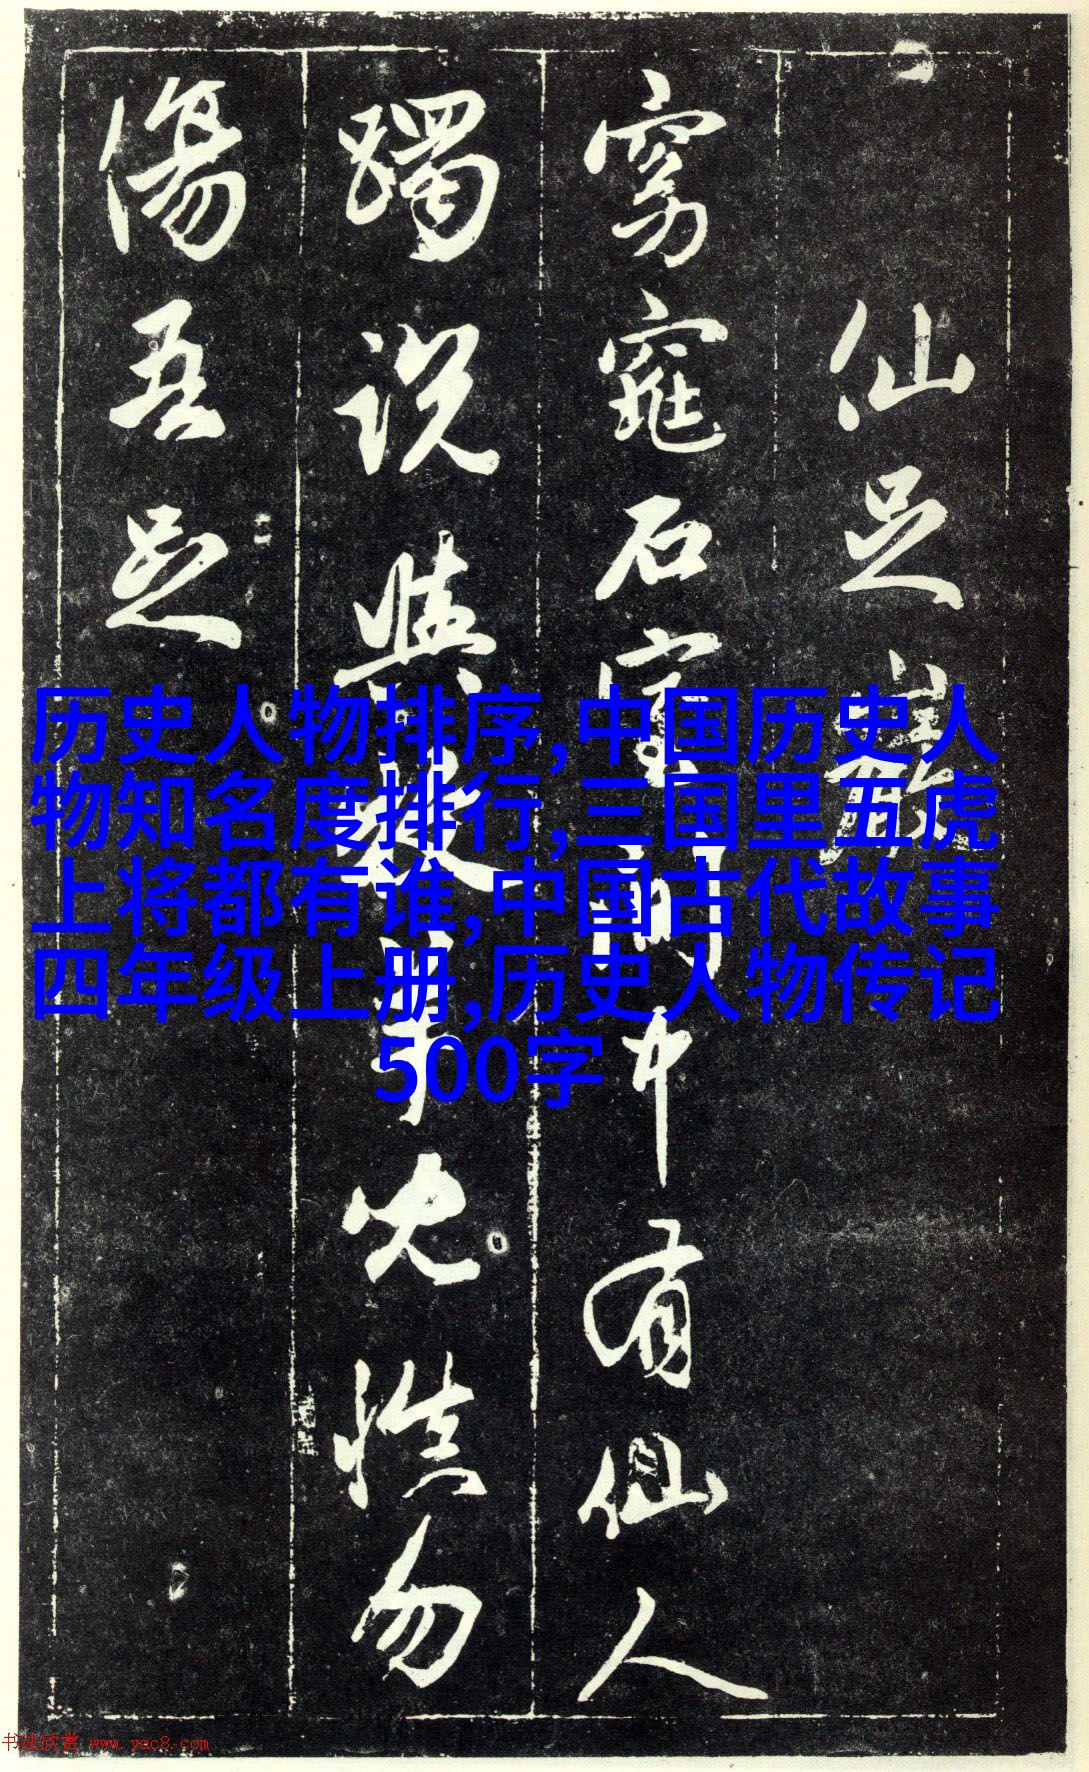 仙足巖
窈窕石室間中有仙人
躅説與牧羊兒慎勿
傷吾足
历史人物排序,中国历史人
物知名度排行,三国里五虎
上将都有谁,中国古代故事
四年级上册,历史人物传记
500字
书法欣赏 www.yac8.com